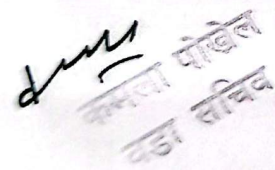 कमला पोखेल
वडा सचिव